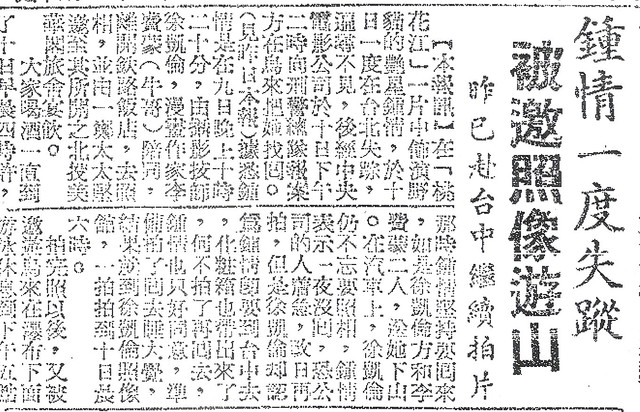 鍾情一度失蹤
被邀照像遊山
昨已赴台中繼續拍片
【本報訊】在「桃
花江」一片中飾演野
貓的艷星鍾情，於十
日一度在台北失踪，
遍尋不見，後經中央
電影公司於十日下午
二時向刑警總隊報案
方在烏來把她找回。
（見昨日本報）據悉鍾
情是在九日晚上十時
二十分，由攝影技師
徐凱倫，漫畫作家李
費蒙（牛哥）陪同，
離開鐵路飯店，去照
相，並由一魏太太堅
邀至其所開之北投美
華閣旅舍宴飲。
大家喝酒一直到
了十日早晨四時許，
那時鍾情堅持要回來
，如是徐凱倫方和李
費蒙二人，於她下山
。在汽車上，徐凱倫
仍不忘要照相，鍾情
表示一夜沒回，恐公
司的人着急，改日再
拍，但是徐凱倫却認
為鍾情卽要到台中去
，化粧箱也帶出來了
，何不拍了再回去，
鍾情也只好同意，準
備拍了回去睡大覺，
結果到徐凱倫照像
館，一拍拍到十日晨
六時。
拍完照以後，又被
邀遊烏來在瀑布下面
游泳休息到下午五點